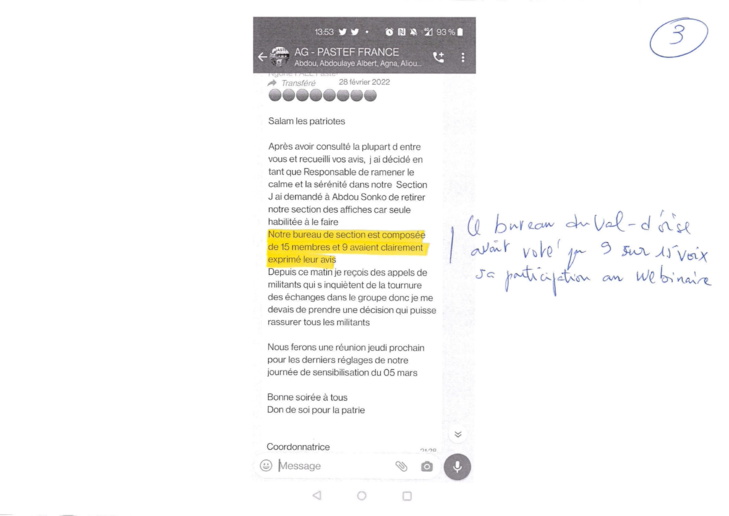 3
13:53 93 %
AG - PASTEF FRANCE
Abdou, Abdoulaye Albert, Agna, Aliou...
Transféré 28 février 2022
Salam les patriotes
Après avoir consulté la plupart d entre
vous et recueilli vos avis, j ai décidé en
tant que Responsable de ramener le
calme et la sérénité dans notre Section
J ai demandé à Abdou Sonko de retirer
notre section des affiches car seule
habilitée à le faire
Notre bureau de section est composée
de 15 membres et 9 avaient clairement
exprimé leur avis
Depuis ce matin je reçois des appels de
militants qui s inquiètent de la tournure
des échanges dans le groupe donc je me
devais de prendre une décision qui puisse
rassurer tous les militants
Nous ferons une réunion jeudi prochain
pour les derniers réglages de notre
journée de sensibilisation du 05 mars
Bonne soirée à tous
Don de soi pour la patrie
Coordonnatrice
Message
Ce bureau du Val-d'oise
avait voté par 9 sur 15 voix
sa participation au webinaire